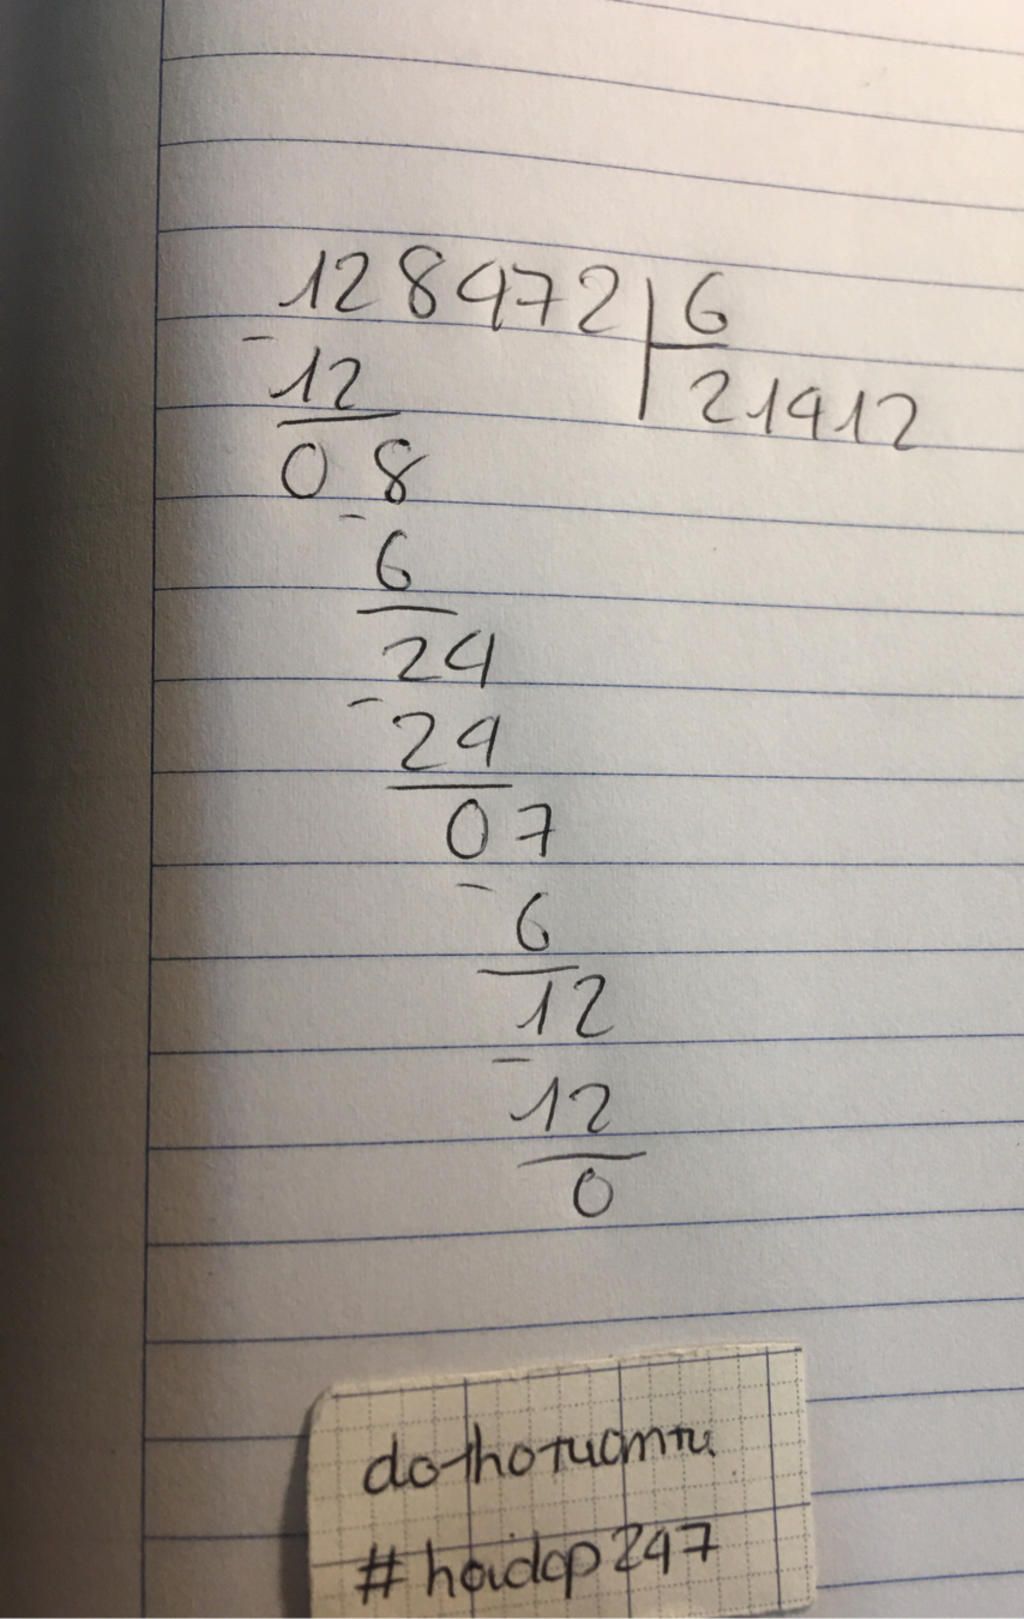 128472 6
- 12 21412
08
- 6
24
- 24
07
- 6
12
- 12
0
dothotuantu.
#hoidap247